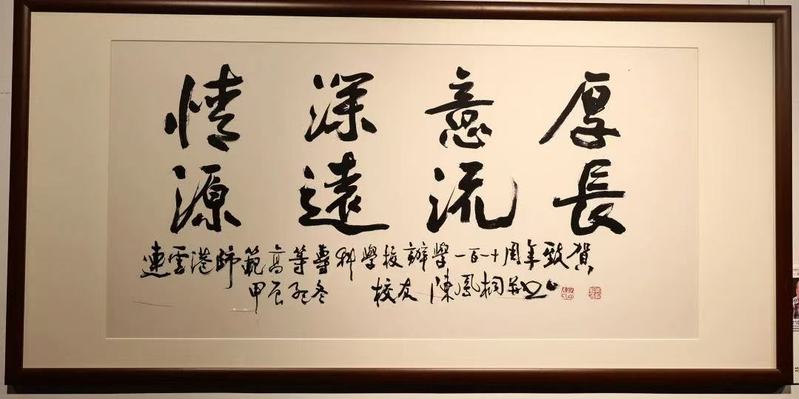 情深意厚
源遠流長
連雲港師範高等專科學校辦學一百一十周年致賀
甲辰冬 校友 陳鳳桐